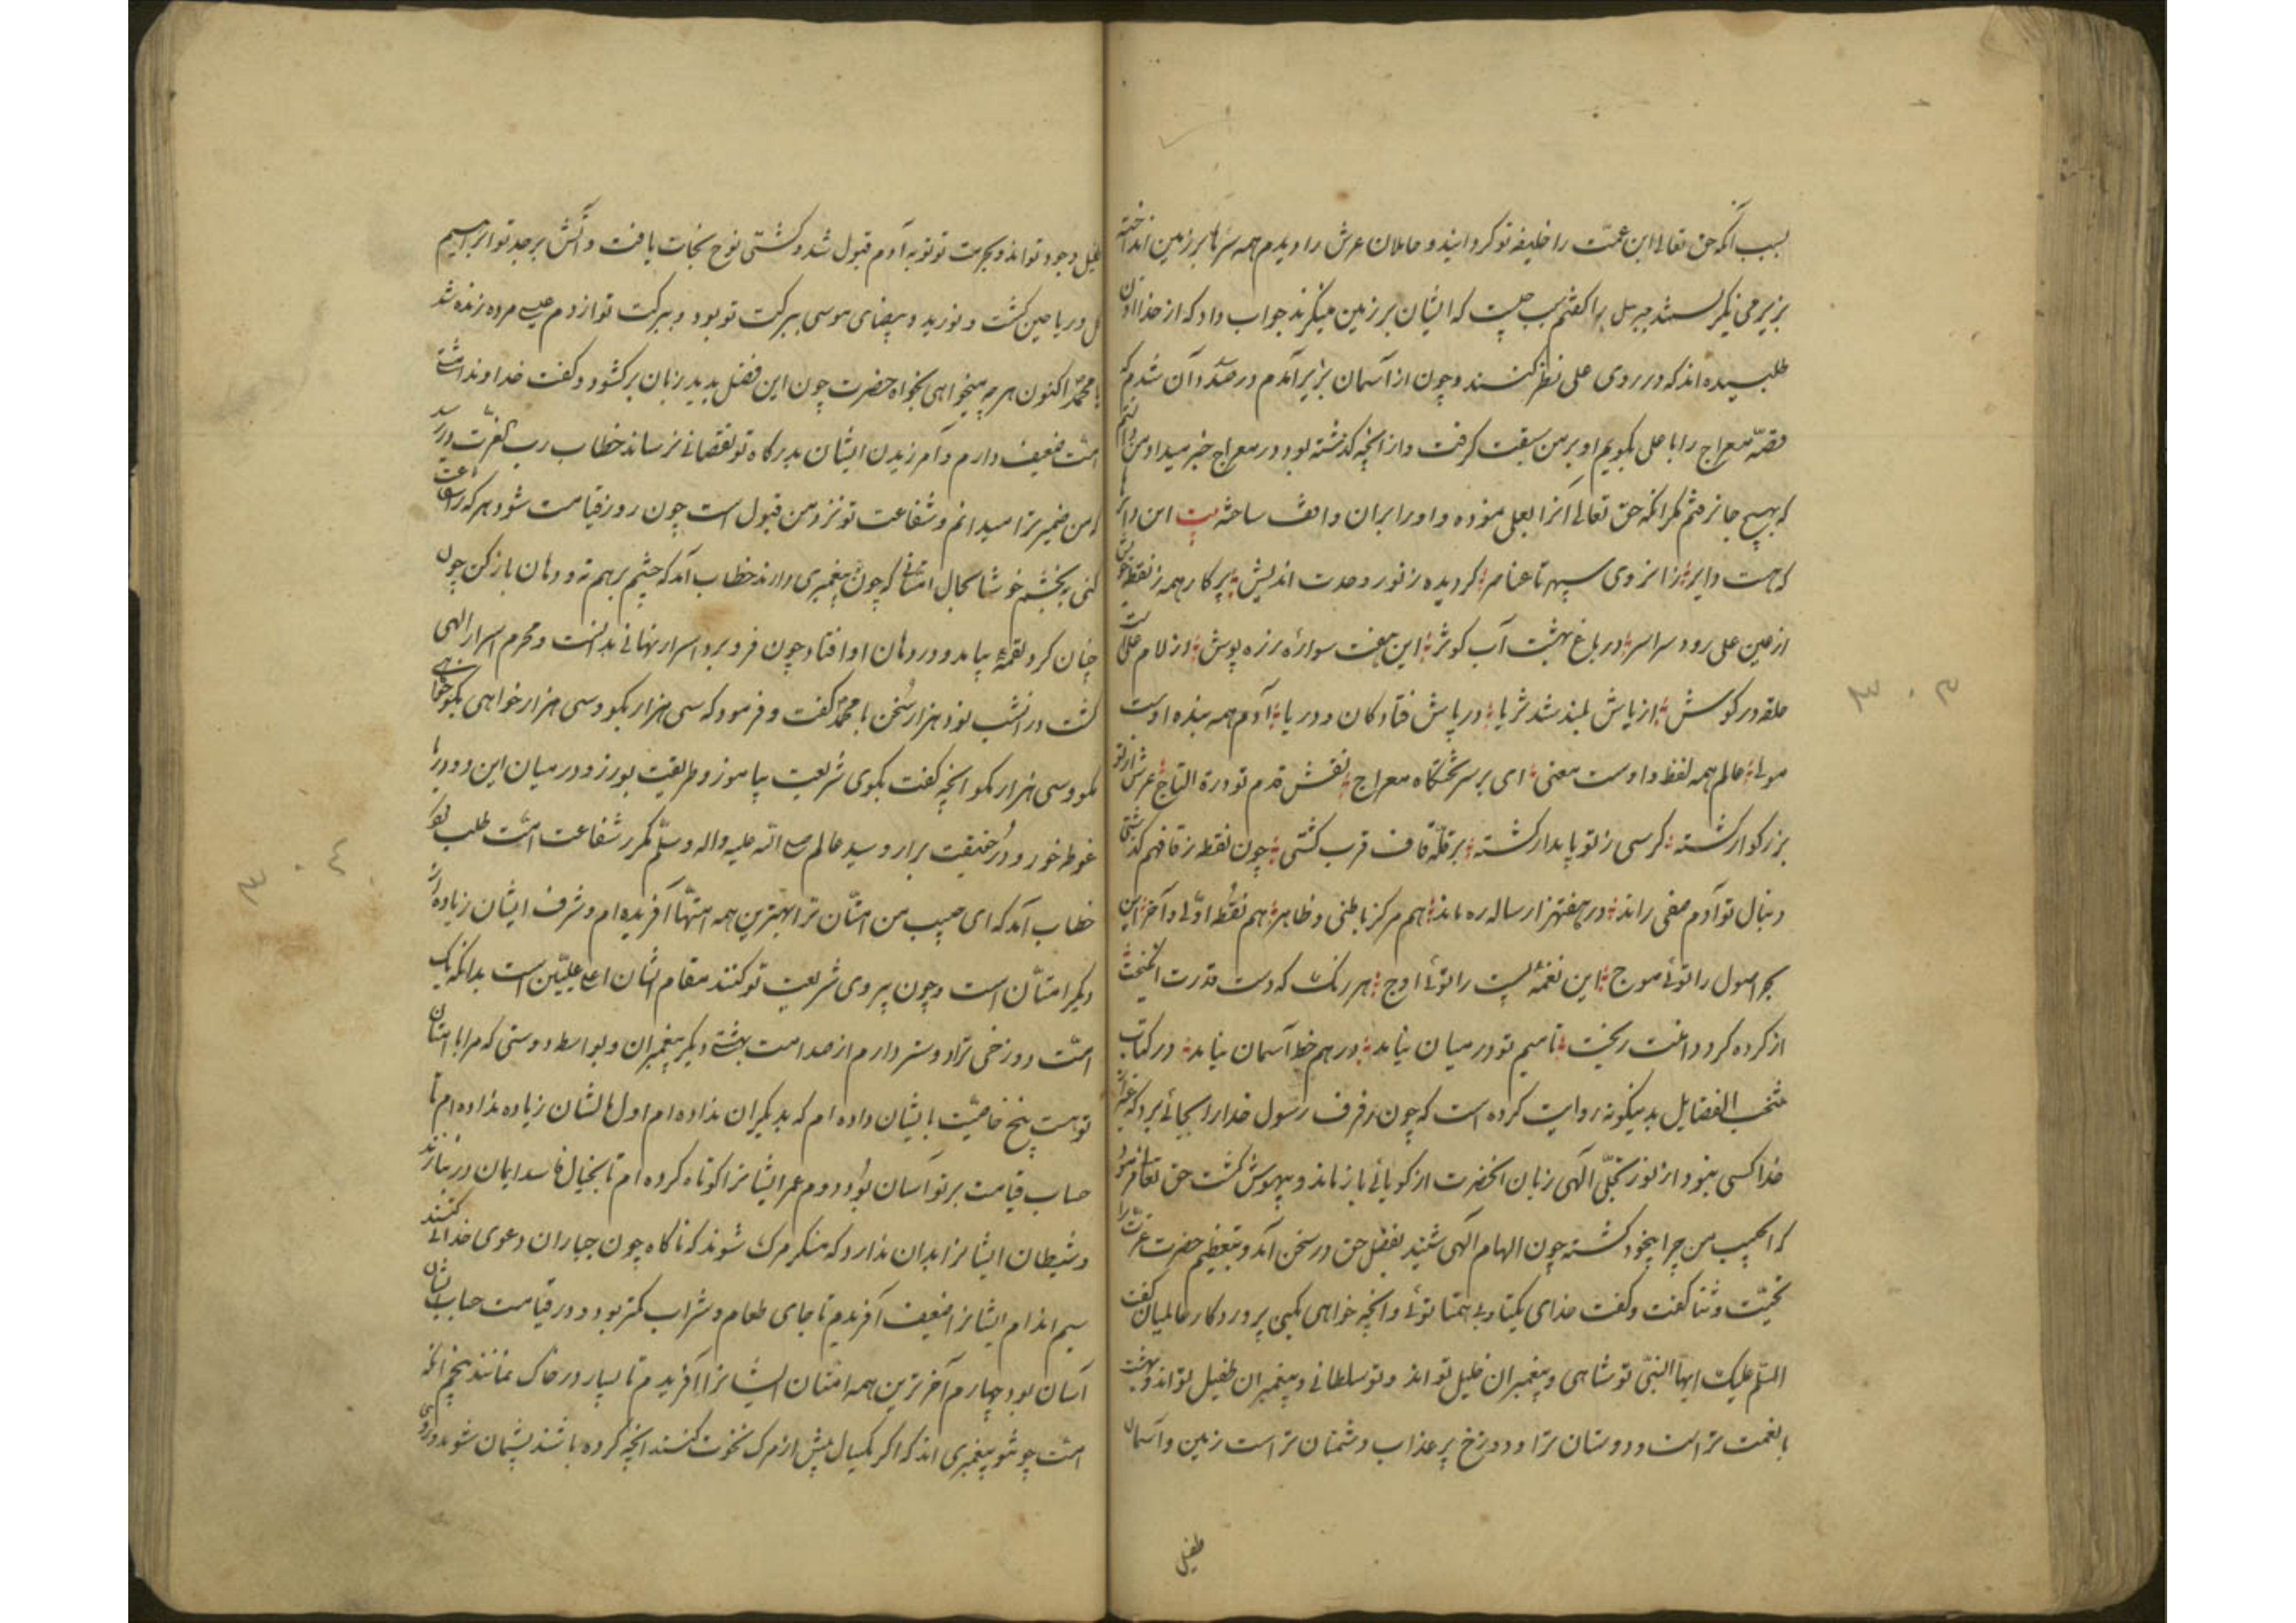 بسبب آنکه حق تعالی ابن عمّت را خلیفه تو کردانیند و حاملان عرش را دیدم همه سرها بر زمین انداخته
بزیر می نیکرستند جبرئیل را کفتم سبب چیست که ایشان بر زمین میکرند جواب داد که از خدا اذن
طلبیده اند که در روی علی نظر کنند و چون از آسمان بزیر آمدم در صدد آن شدم که
قصّه معراج را با علی بکویم او بر من سبقت کرفت و از انچه کذشته بود در معراج خبر میداد من دانستم
که بهیچ جا نرفتم مکر آنکه حق تعالی آنرا بعلی نموده و او را بران واقف ساخته بیت این دایره
که هست دایر از انروی سپهر تا عناصر کردیده ز نور وحدت اندیش پرکار همه ز نقطه خویش
از عین علی رود سراسر در باغ بهشت آب کوثر این هفت سواره زره پوش از لام علیست
حلقه در کوش از یاش بلند شد ثریا در پاش فتادکان و دریا آدم همه بنده اوست
مولی عالم همه لفظ و اوست معنی ای بر سر تختکاه معراج نقش قدم تو درة التاج عرش از تو
بزرکوار کشته کرسی ز تو پایدار کشته بر قلّه قاف قرب کشتی چون نقطه ز قاف هم کذشتی
دنبال تو آدم صفی راند در هفتهزار ساله ره ماند هم مرکز باطنی و ظاهر هم نقطه اوّلی و آخر این
بحر اصول را توئی موج این نغمه پست را توئی اوج هر رنک که دست قدرت انکیخت
از کرده کرد دامنت ریخت تا میم تو در میان نیاید در هم خط آسمان نیاید در کتاب
منتخب الفضایل بدینکونه روایت کرده است که چون رفرف رسول خدا را بجائی برد که غیر از
خدا کسی نبود از نور تجلّی آلهی زبان انحضرت از کویائی باز ماند و بیهوش کشت حق تعالی فرمود
که ای حبیب من چرا بیخود کشته چون الهام آلهی شنید بفضل حق در سخن آمد و بتعظیم حضرت عزّت را
تحیّت و ثنا کفت و کفت خدای یکتا و بی همتا توئی و انچه خواهی کنی پروردکار عالمیان کفت
السّلم علیک ایها النبّی تو شاهی و پیغمبران خلیل تو اند و تو سلطانی و پیغمبران طفیل تو اند و بهشت
با نعمت تراست و دوستان ترا و دوزخ پر عذاب دشمنان تراست زمین و آسمان
طفیل
طفیل وجود تو اند و بحرمت تو توبه آدم قبول شد و کشتی نوح نجات یافت و آتش بر جد تو ابراهیم
کل و ریاحین کشت و نور ید بیضای موسی ببرکت تو بود و ببرکت تو از دم عیسی مرده زنده شد
یا محمّد اکنون هر چه میخواهی بخواه حضرت چون این فضل بدید زبان برکشود و کفت خداوندا مشتی
امّت ضعیف دارم و آمرزیدن ایشان بدرکاه تو نقصانی نرساند خطاب رب العزّت در رسید
که من ضمیر ترا میدانم و شفاعت تو نزد من قبول است چون روز قیامت شود هر که را شفاعت
کنی ببخشم خوشا بحال امتّانی که چون تو پیغمبری دارند خطاب آمد که چشم بر هم نه و دهان باز کن چون
چنان کرد لقمهٔ بیامد و در دهان او افتاد چون فرو برد اسرار نهانی بدانست و محرم اسرار الهی
کشت در انشب نود هزار سخن با محمّد کفت و فرمود که سی هزار بکو و سی هزار خواهی بکو خواهی
مکو و سی هزار مکو انچه کفت بکوی شریعت بیاموز و طریقت بورز و در میان این دو دریا
غوطه خور و درّ حقیقت برار و سید عالم صلی الله علیه و اله و سلّم مکرر شفاعت امّت طلب نمود
خطاب آمد که ای حبیب من امتّان ترا بهترین همه امتهّا آفریده ام و شرف ایشان زیاده از
دیکر امتّان است و چون پیروی شریعت تو کنند مقام ایشان اعلی علیّین است بدانکه یک
امّت دوزخی ترا دوستر دارم از صد امت بهشتی دیکر پیغمبران و بواسطه دوستی که مرا با امتان
تو هست پنج خاصیّت بایشان داده ام که بدیکران نداده ام اول مالشان زیاده نداده ام تا
حساب قیامت بر تو آسان بود دوم عمر ایشانرا کوتاه کرده ام تا بخیال فاسد ایمان در نبازند
و شیطان ایشانرا بدان ندارد که منکر مرک شوند که ناکاه چون جباران دعوی خدائی کنند
سیم اندام ایشانرا ضعیف آفریدم تا جای طعام و شراب کمتر بود و در قیامت حساب ایشان
آسان بود چهارم آخر ترین همه امتان ایشانرا آفریدم تا بسیار در خاک نمانند پنجم آنکه
امّت چو تو پیغمبری اند که اکر یکسال پیش از مرک نخوت کنند انچه کرده باشند پشیمان شوند و روی